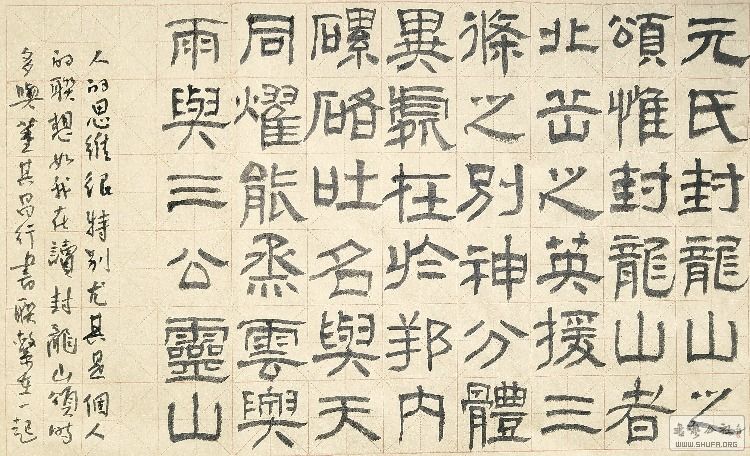 元氏封龍山之
頌惟封龍山者
北岳之英援三
條之別神分體
異處在於邦内
磥硌吐名與天
同燿能烝雲興
雨與三公靈山
人的思維很特别尤其是個人
的聯想如我在讀封龍山頌時
多與董其昌行書聯繫在一起
WWW.SHUFA.ORG